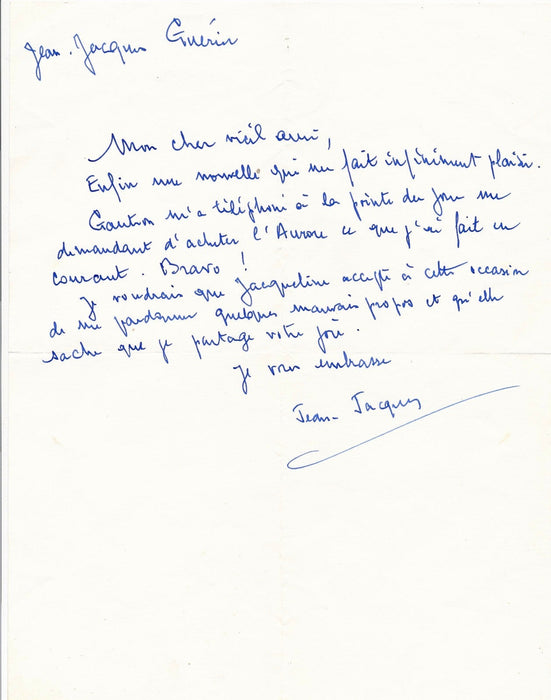 Jean-Jacques Guérin
Mon cher vieil ami,
Enfin une nouvelle qui me fait infiniment plaisir.
Gautron m'a téléphoné à la pointe du jour me
demandant d'acheter l'Aurore ce que j'ai fait en
courant. Bravo !
Je voudrais que Jacqueline accepte à cette occasion
de me pardonner quelques mauvais propos et qu'elle
sache que je partage votre joie.
Je vous embrasse
Jean-Jacques